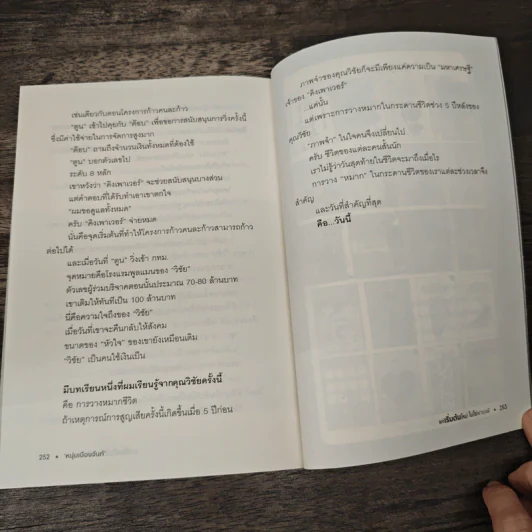 เช่นเดียวกับตอนโครงการก้าวคนละก้าว
"ตูน" เข้าไปคุยกับ "ต๊อบ" เพื่อขอการสนับสนุนการวิ่งครั้งนี้
ซึ่งมีค่าใช้จ่ายในการจัดการสูงมาก
"ต๊อบ" ถามถึงจำนวนเงินทั้งหมดที่ต้องใช้
"ตูน" บอกตัวเลขไป
ระดับ 8 หลัก
เขาหวังว่า "คิงเพาเวอร์" จะช่วยสนับสนุนบางส่วน
แต่คำตอบที่ได้รับทำเอาเขาตกใจ
"ผมขอดูแลทั้งหมด"
ครับ "คิงเพาเวอร์" จ่ายหมด
นั่นคือจุดเริ่มต้นที่ทำให้โครงการก้าวคนละก้าวสามารถก้าว
ต่อไปได้
และเมื่อวันที่ "ตูน" วิ่งเข้า กทม.
จุดหมายคือโรงแรมพูลแมนของ "วิชัย"
ตัวเลขผู้ร่วมบริจาคตอนนั้นประมาณ 70-80 ล้านบาท
เขาเติมให้ทันทีเป็น 100 ล้านบาท
นี่คือความใจถึงของ "วิชัย"
เมื่อวันที่เขาจะคืนกลับให้สังคม
ขนาดของ "หัวใจ" ของเขายังเหมือนเดิม
"วิชัย" เป็นคนใช้เงินเป็น
มีบทเรียนหนึ่งที่ผมเรียนรู้จากคุณวิชัยครั้งนี้
คือ การวางหมากชีวิต
ถ้าเหตุการณ์การสูญเสียครั้งนี้เกิดขึ้นเมื่อ 5 ปีก่อน
252 • 'หนุ่มเมืองจันท์'
ภาพจำของคุณวิชัยก็จะมีเพียงแค่ความเป็น "มหาเศรษฐี"
เจ้าของ "คิงเพาเวอร์"
...แค่นั้น
แต่เพราะการวางหมากในกระดานชีวิตช่วง 5 ปีหลังของ
คุณวิชัย
"ภาพจำ" ในใจคนจึงเปลี่ยนไป
ครับ ชีวิตของแต่ละคนสั้นนัก
เราไม่รู้ว่าวันสุดท้ายในชีวิตจะมาถึงเมื่อไร
การวาง "หมาก" ในกระดานชีวิตของเราแต่ละช่วงเวลาจึง
สำคัญ
และวันที่สำคัญที่สุด
คือ...วันนี้
• 253